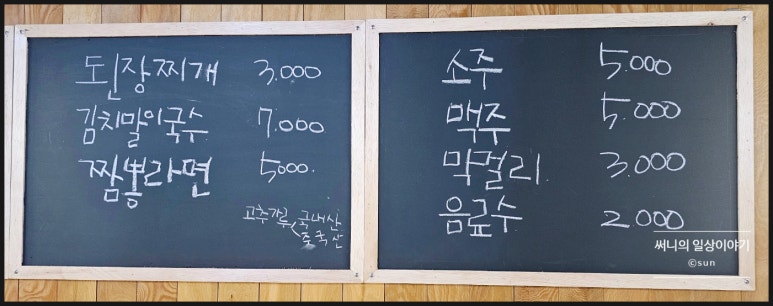 된장찌개 3.000
김치말이국수 7.000
짬뽕라면 5000.
고추가루 국내산
중국산
소주 5.000
맥주 5.000
막걸리 3.000
음료수 2.000
써니의 일상이야기
©sun